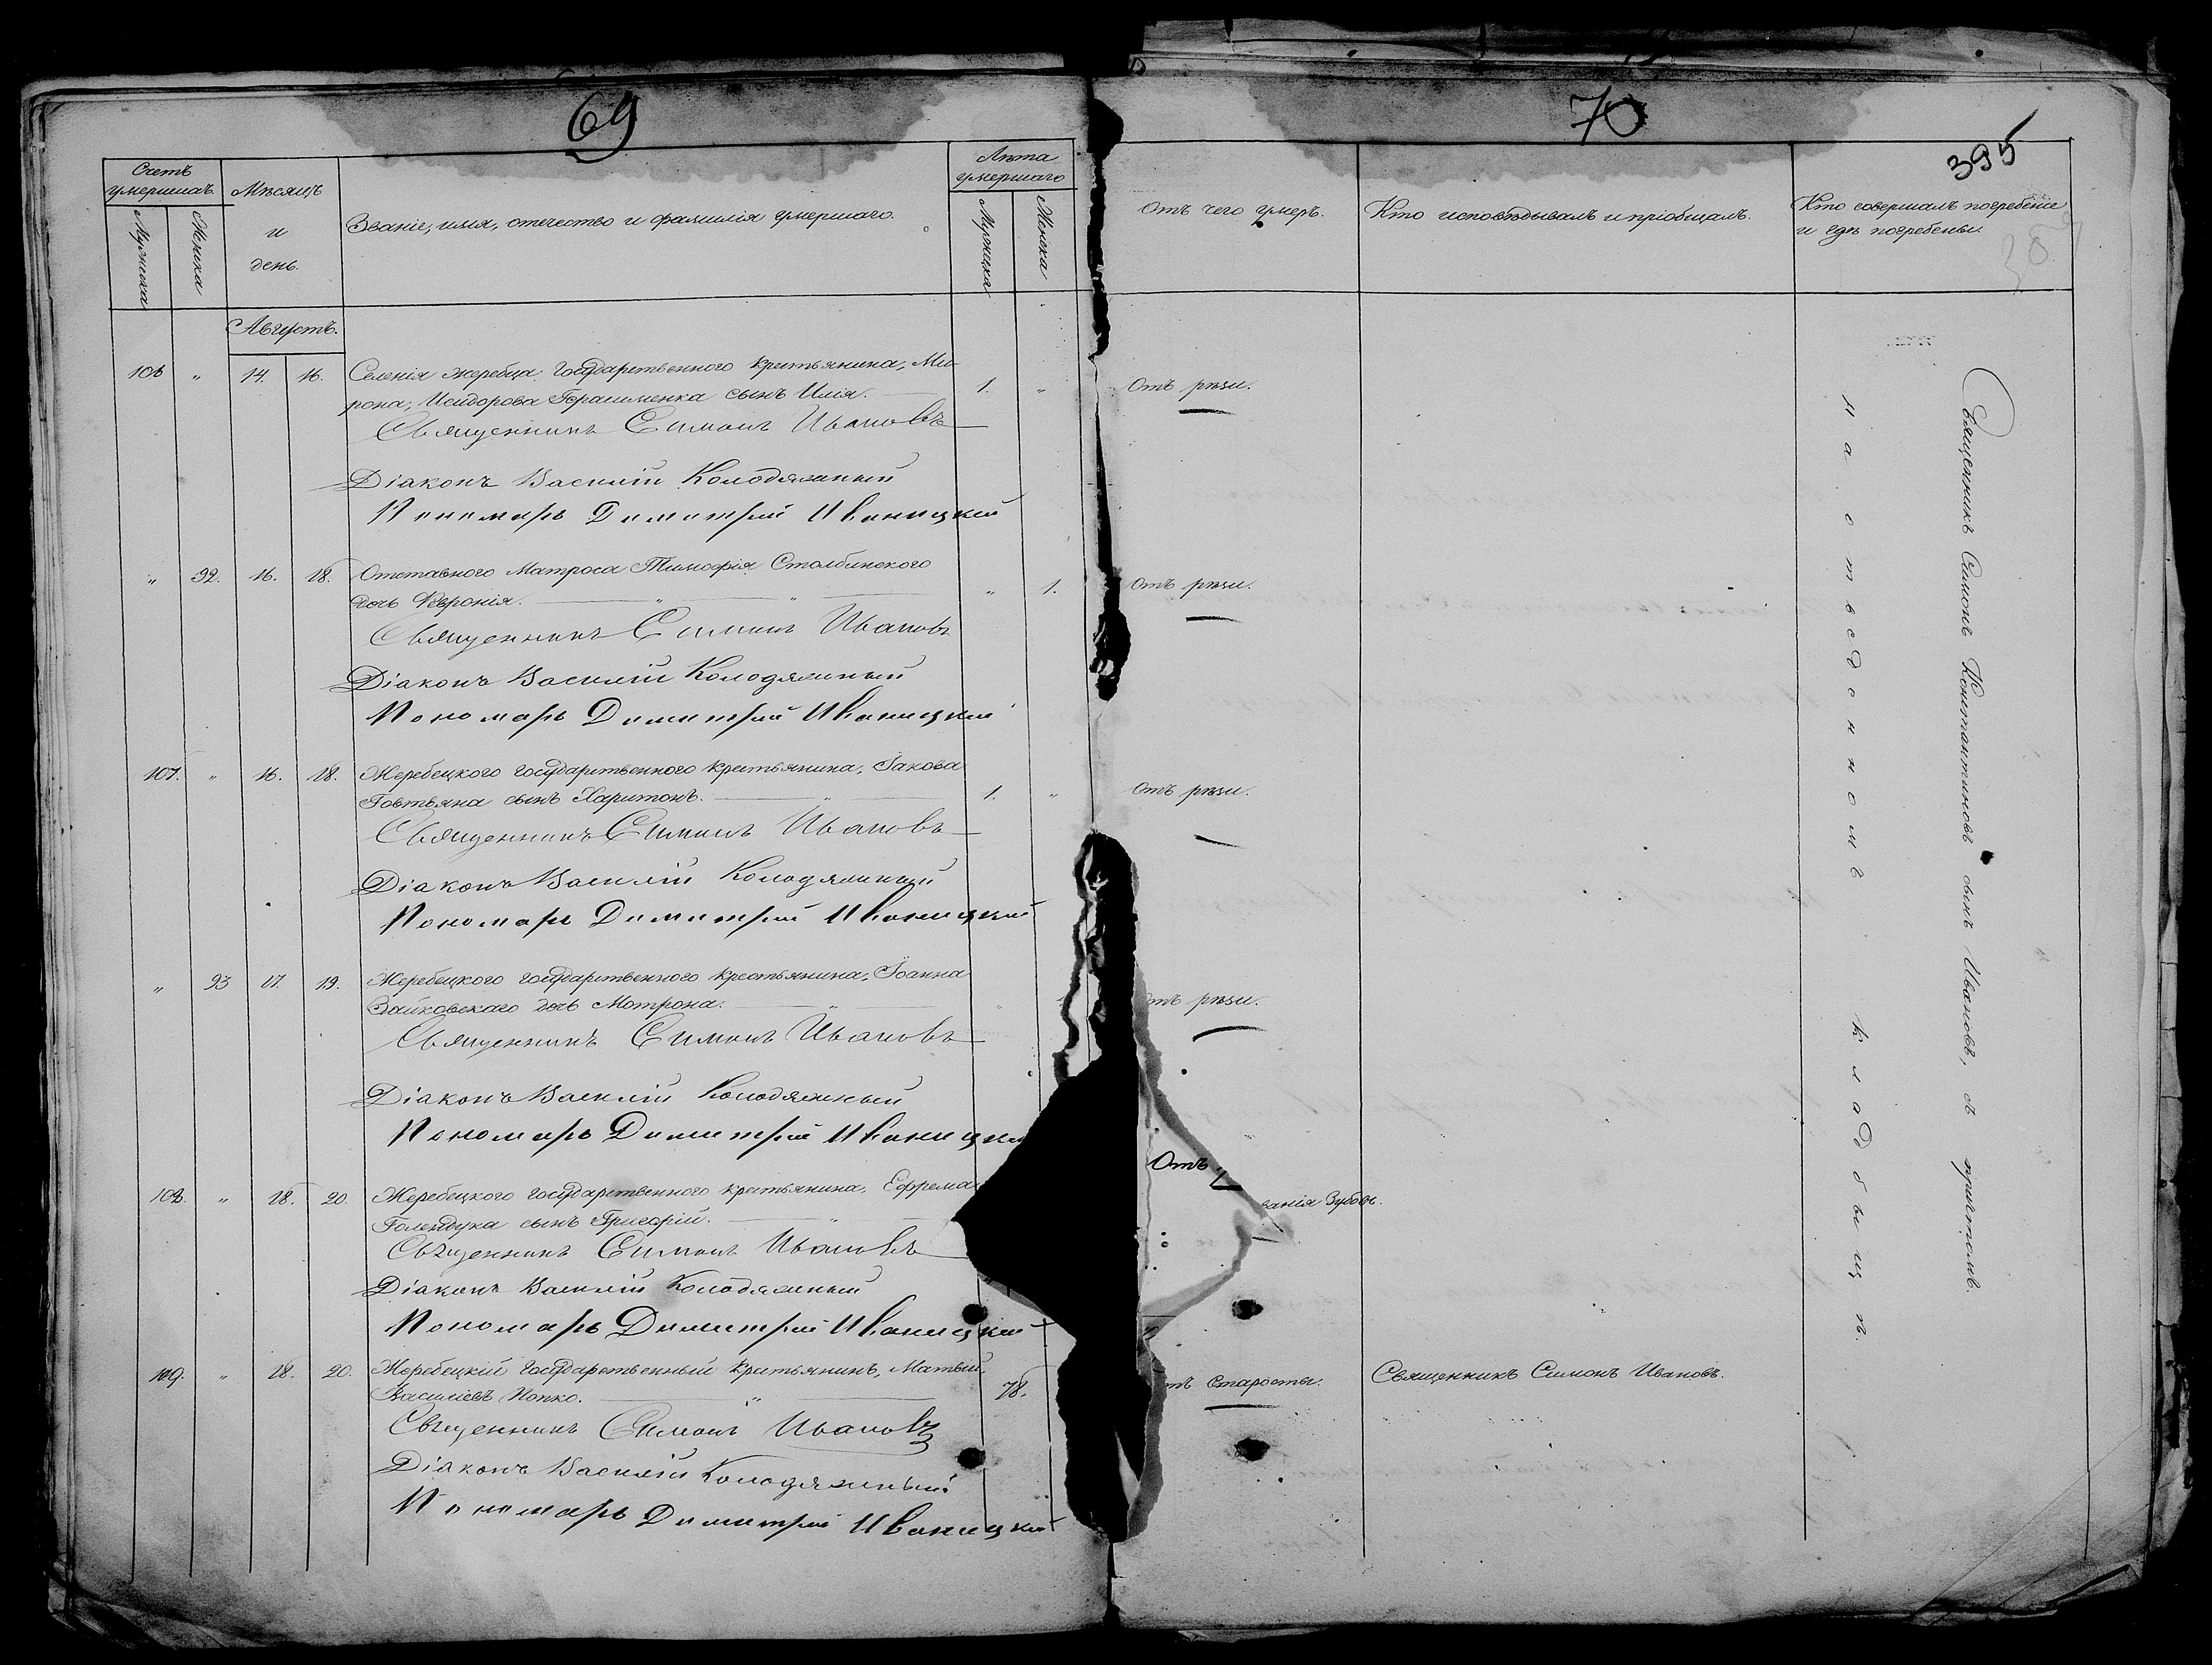 69
Счетъ умершихъ.
Мужеска
Женска
Мѣсяцъ и день.
Званіе, имя, отчество и фамилія умершаго.
Лѣта умершаго
Мужеска
Женска
Августъ.
106 „ 14. 16. Селенія Жеребца Государственного крестьянина, Ми-
рона, Исидорова Герасименка сынъ Илія. 1. „
Священникъ Симонъ Ивановъ
Діаконъ Василій Колодяжный
Пономарь Димитрій Иваницкій
„ 92. 16. 18. Отставного Матроса Тимофія Столбинского
дочь Феронія. „ „ „ 1.
Священникъ Симонъ Ивановъ
Діаконъ Василій Колодяжный
Пономарь Димитрій Иваницкій
107. „ 16. 18. Жеребецкого государственного крестьянина, Іакова
Говтвяна сынъ Харитонъ. „ 1. „
Священникъ Симонъ Ивановъ
Діаконъ Василій Колодяжный
Пономарь Димитрій Иваницкій
„ 93 17. 19. Жеребецкого государственного крестьянина, Іоанна
Зайковскаго дочь Мотрона. „
Священникъ Симонъ Ивановъ
Діаконъ Василій Колодяжный
Пономарь Димитрій Иваницкій
108. „ 18. 20. Жеребецкого государственного крестьянина, Ефрема
сынъ Григорій. „
Священникъ Симонъ Ивановъ
Діаконъ Василій Колодяжный
Пономарь Димитрій Иваницкій
109. „ 18. 20. Жеребецкій государственный крестьянинъ, Матвій
Василіевъ Попко. „ 78.
Священникъ Симонъ Ивановъ
Діаконъ Василій Колодяжный
Пономарь Димитрій Иваницкій
70
395
Отъ чего умеръ.
Кто исповѣдывалъ и пріобщалъ.
Кто совершалъ погребеніе
и гдѣ погребены.
Отъ рѣзи.
Отъ рѣзи.
Отъ рѣзи.
отъ рѣзи.
Отъ
ванія Зубовъ.
тъ Старости.
Священникъ Симонъ Ивановъ.
на отведенномъ кладбыщѣ
Священникъ Симонъ Константиновъ сынъ Ивановъ, съ причтомъ.